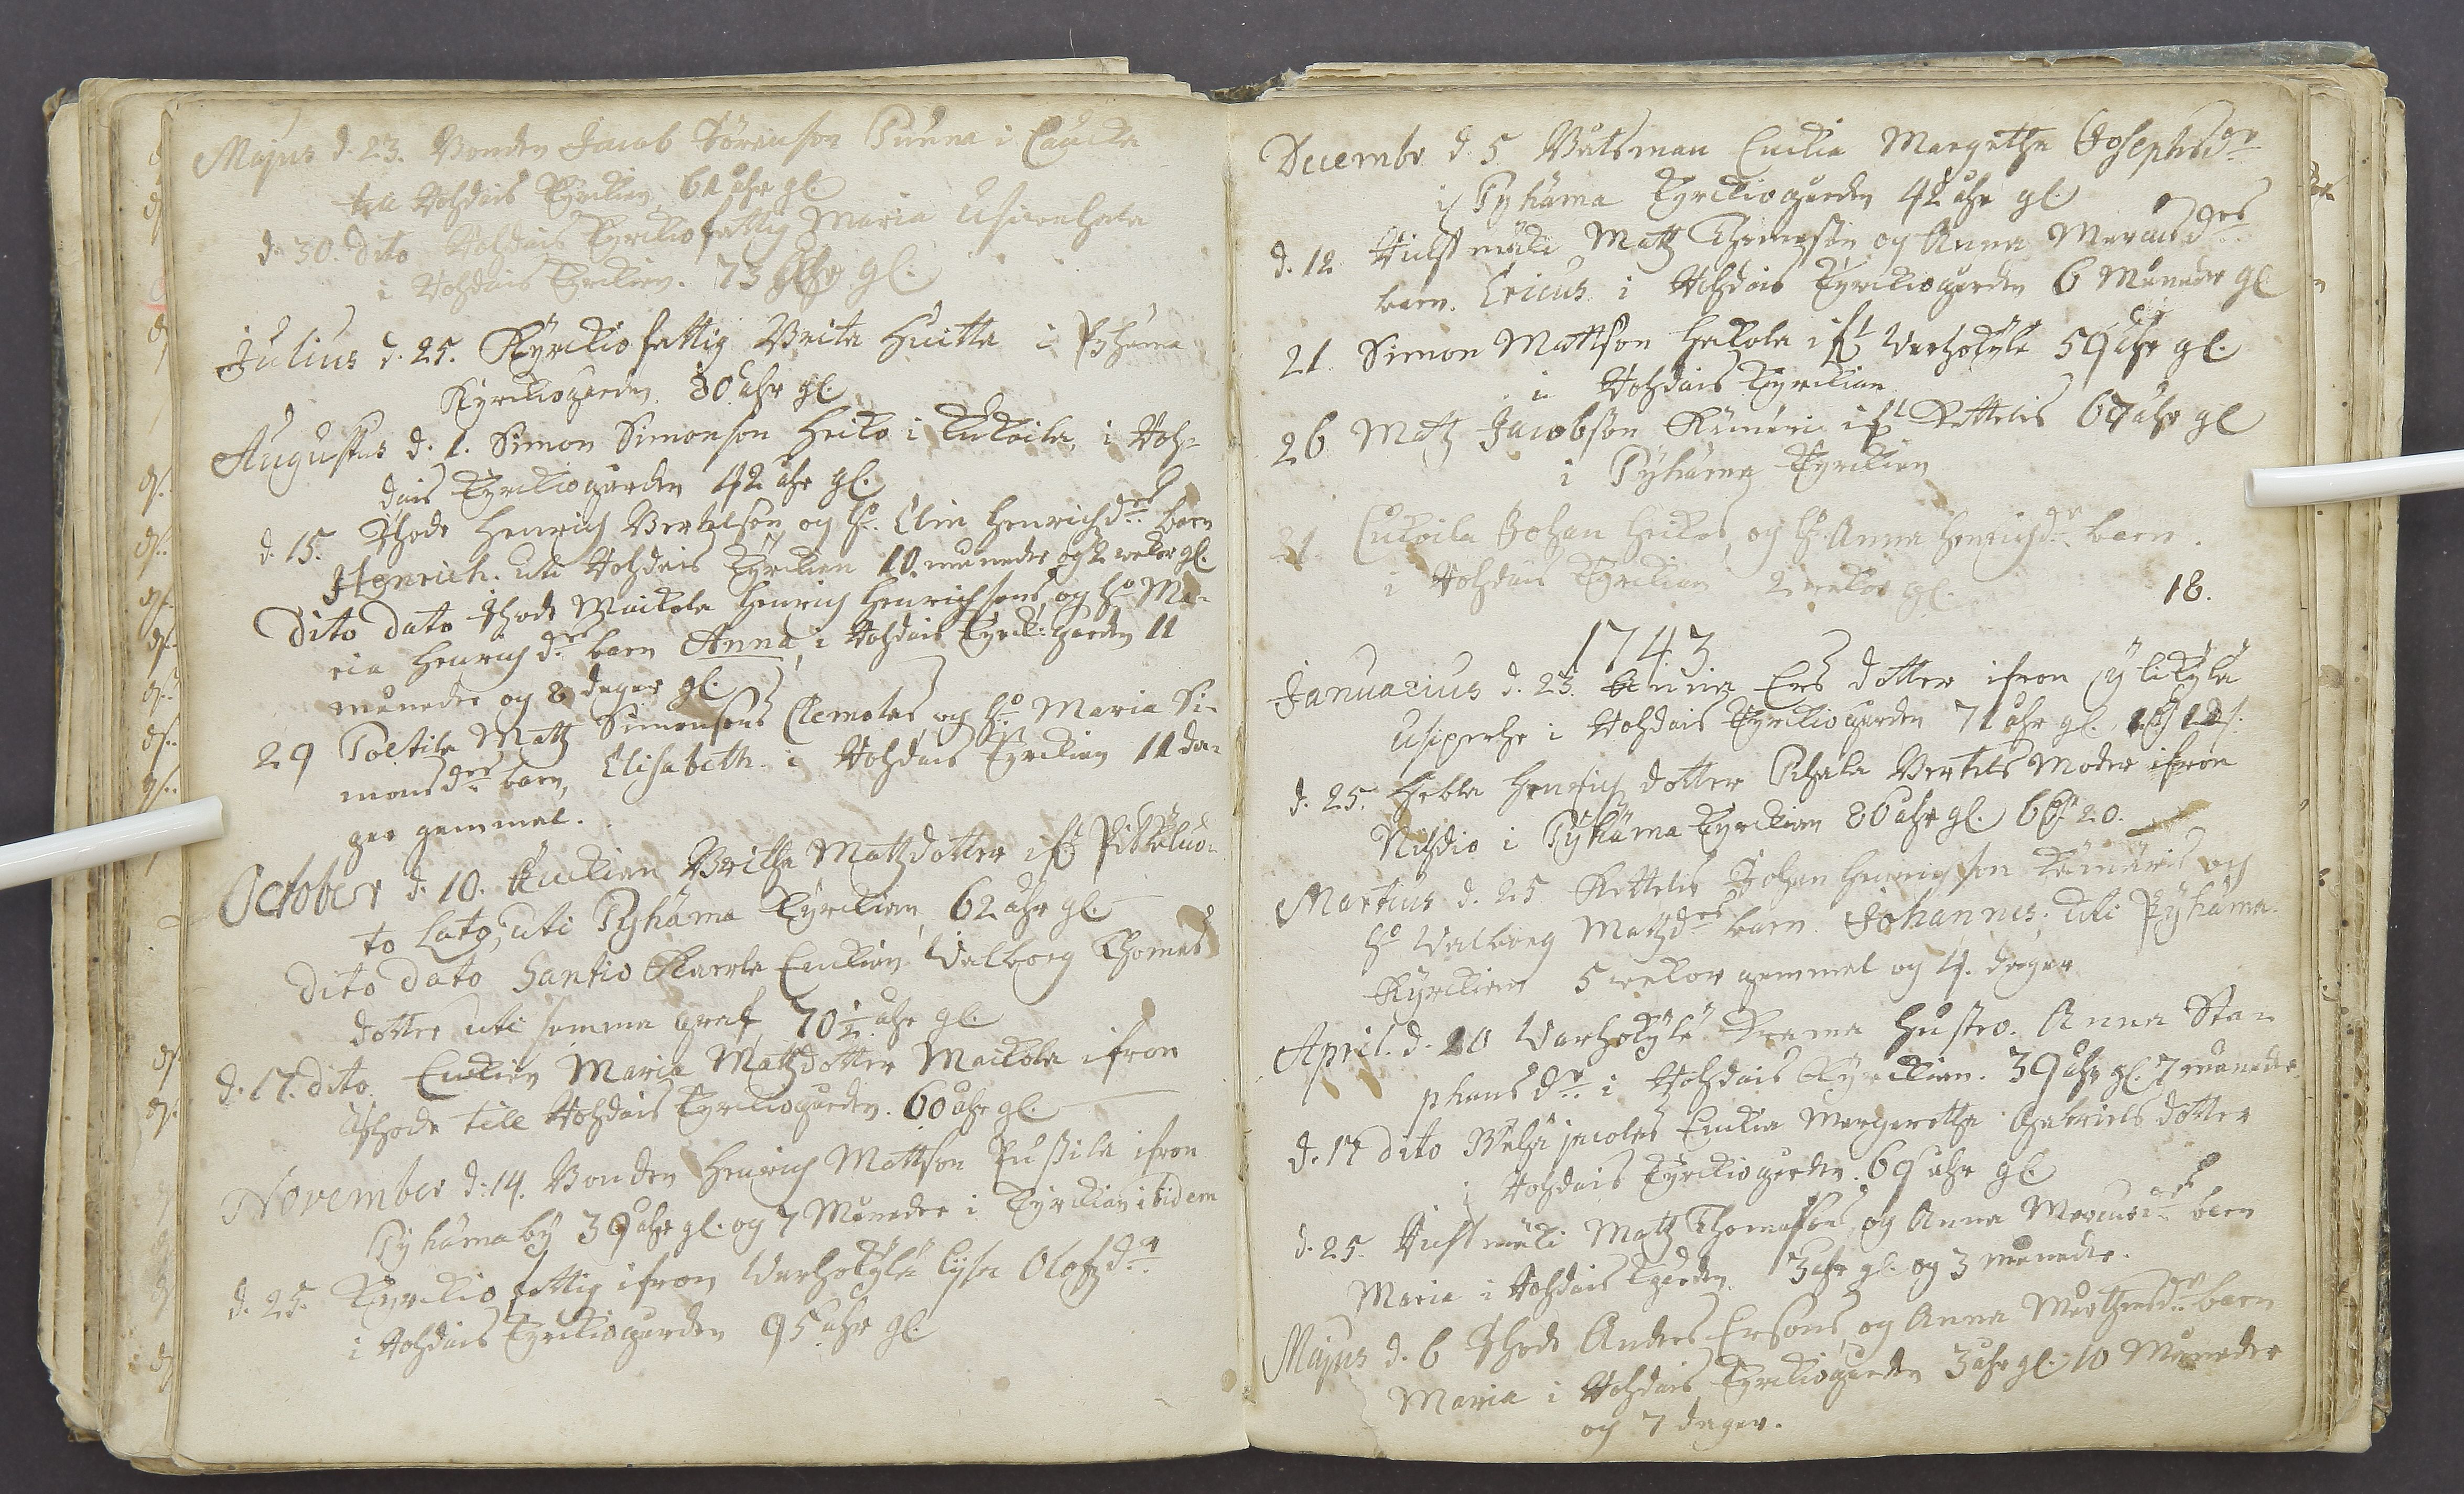 Majus d. 23. Bonden Jacob Sörenson Punna i Caucka
till Rohdais Kyrkian 61 ahr gl.
d. 30. Dito Rohdais Kyrkiofattig Maria Usiperhala
i Rohdais Kyrkian. 73 ahr gl.
Julius d. 25. Kyrkiofattig Brita Huitta i Pyhäma
Kyrkiogården 80 ahr gl.
Augustus d. 1. Simon Simonson Heiko i Kukoila, i Roh-
dais Kyrkiogården 42 ahr gl.
d. 15. Ihode Henrich Bertelson og h. Elin Henrichdrs barn
Henrich. uti Rohdais Kyrkian 10. månader og 2 wekor gl.
Dito dato Ihode Maikola Henrich Henrichsons og ho Ma-
ria Henrich drs barn Anna, i Rohdais Kyrck: gården 11
månader og 8 dagar gl.
29 Poltila Matz Simonsons Clemolas og ho Maria Si-
mons drs barn, Elisabeth i Rohdais Kyrkian 11 da-
gar gammal.
October d. 10. Änckian Britha Matzdotter ifr Pitkeluo-
to Lato, uti Pyhäma Kyrkian, 62 ahr gl.
Dito dato, Santio Kaarla Enkian Walborg Thomas
dotter uti samma graf 70 1/2 ahr gl.
d. 17. dito Enkian Maria Matzdotter Maikola ifron
Ihode till Rohdais Kyrkiogården. 60 ahr gl.
November d. 14. Bonden Henrich Mattson Pussila ifron
Pyhäma by 39 ahr gl. og 7 Månader i Kyrkian ibidem
d. 25. Kyrkio fattig ifron Warhokylä Lisa Olofzdr
i Rohdais Kyrkiogården 95 ahr gl.
Decembr d. 5 Båtsman Enckia Margetha Josephsdr
i Pyhäma Kyrkiogården 42 ahr gl.
d. 12 Matz Thomason og Anna Marcusdrs
barn. Ericus i Rohdais Kyrkiogården 6 Månader gl
21 Simon Mattson Heikola ifr Warhokylä 59 ahr gl.
i Rohdais Kyrkian
26 Matz Jacobson Kämäri ifr Kettelis 67 ahr gl
i Pyhäma Kyrkian
21. Cukoila Johan Heikos, og h. Anna Henrichdr barn.
i Rohdais Kyrkian 2 wekor gl.
18.
1743.
Januarius d. 23. Anna Ers dotter ifron Ylikylä
Usiperhe i Rohdais Kyrkiogården 71 ahr gl.
d. 25. Hebla Henrich dotter Pihala Bertils Moder ifron
Nihdio i Pyhäma Kyrkian 86 ahr gl. 6 20.
Martius d. 25 Kettelis Johan Henrichson Kämäris og
ho Walborg Matzdrs barn Johannes, uti Pyhäma
Kyrkian 5 wekor gammal og 4. dagar
April. d. 10 Warhokylä Krama hustro. Anna Sta-
phans dr. i Rohdais Kyrkian. 39 ahr gl. 7 månader
d. 17 dito Enckia Margaretha Gabriels dotter
i Rohdais Kyrkiogården. 69 ahr gl.
d. 25. Matz Thomassons og Anna Marcusdrs barn
Maria i Rohdais Kgården 3 ahr gl. og 3 månader.
Majus d. 6 Ihode Andres Ersons, og Anna Marthensdr barn
Maria i Rohdais Kyrkiogården 3 ahr gl. 10 Månader
og 7 dagar.